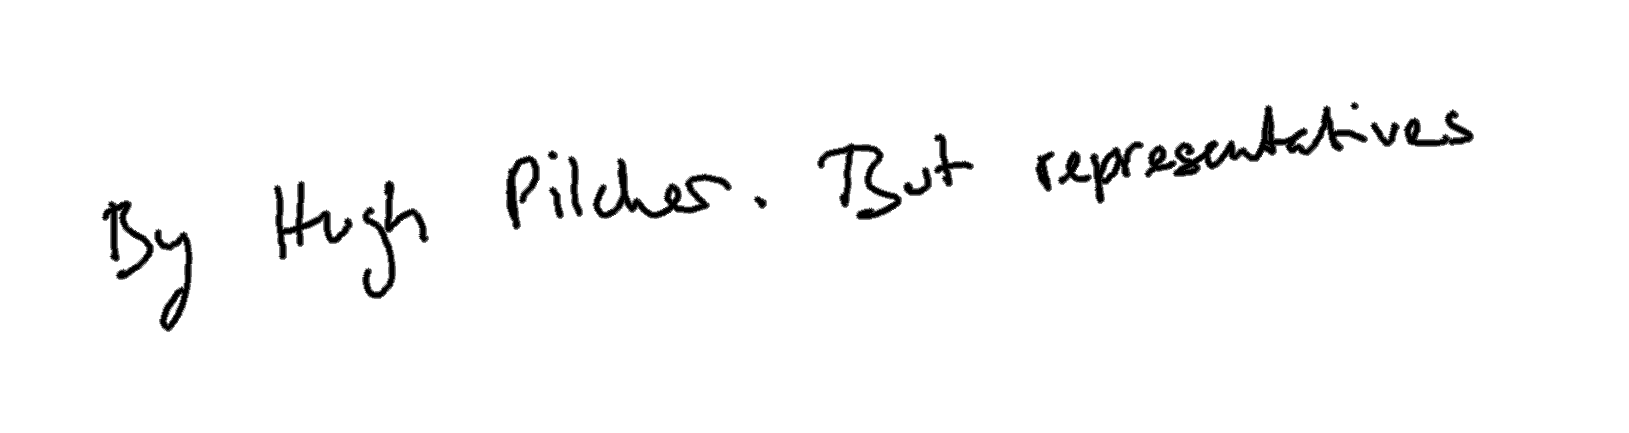 By Hugh Pilcher. But representatives